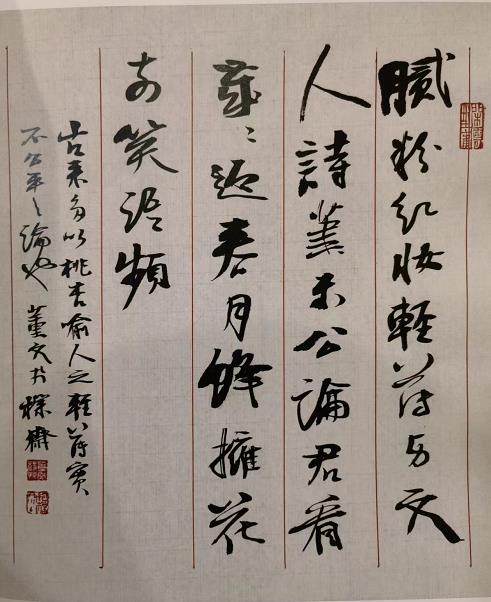 膩粉紅妝輕薄身文
人詩未公論君看
歲々迎春月蜂擁花
前笑語頻
古來多以桃杏喻人之輕薄實
不公平之論也 董文於